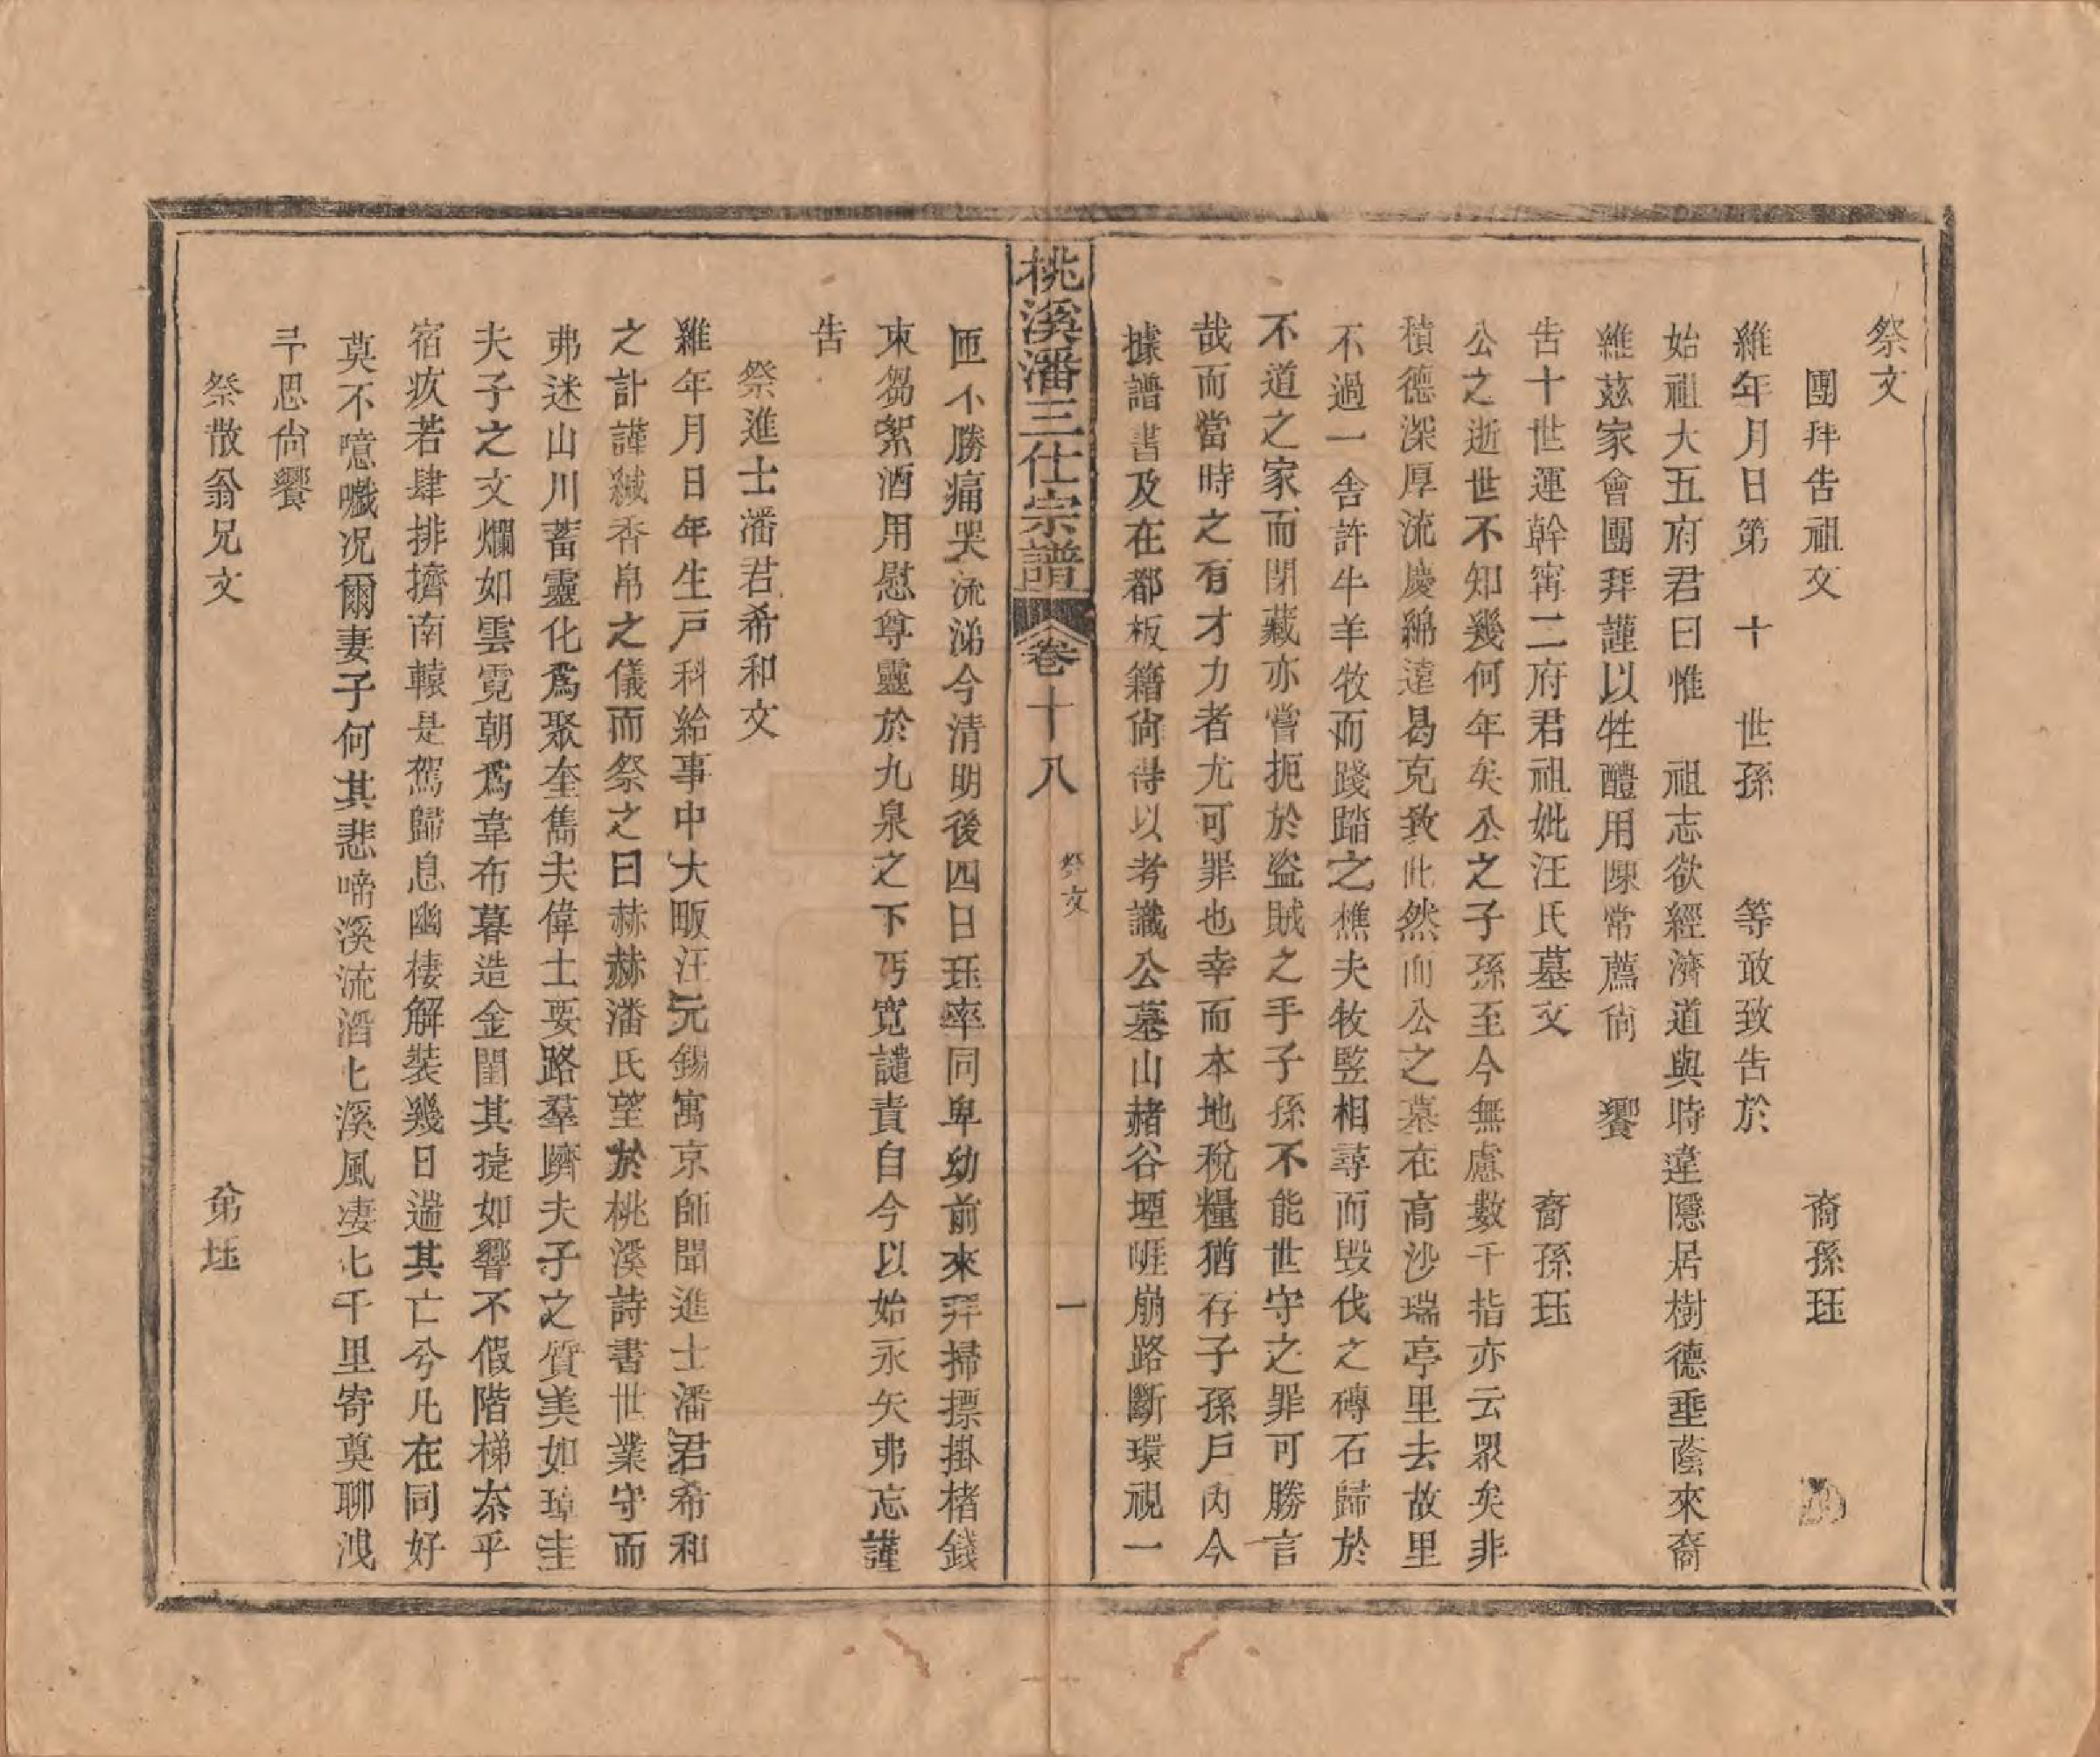 祭文
團拜告祖文 裔孫珏
維年月日第 十 世孫 等敢致告於
始祖大五府君曰惟 祖志欲經濟道與時違隱居樹德垂蔭來裔
維茲家會團拜謹以牲醴用陳常薦尙 饗
告十世運幹甯二府君祖妣汪氏墓文 裔孫珏
公之逝世不知幾何年矣公之子孫至今無慮數千指亦云眾矣非
積德深厚流慶綿遠曷克致此然而公之墓在高沙瑞亭里去故里
不過一舍許牛羊牧而踐踏之樵夫牧豎相尋而毀伐之磚石歸於
不道之家而閉藏亦嘗扼於盜賊之手子孫不能世守之罪可勝言
哉而當時之有才力者尤可罪也幸而本地稅糧猶存子孫戶內今
據譜書及在都板籍尙得以考識公墓山赭谷堙崕崩路斷環視一
桃溪潘三仕宗譜 卷十八 祭文 一
匝不勝痛哭流涕今清明後四日珏率同卑幼前來拜掃摽掛楮錢
束芻絮酒用慰尊靈於九泉之下丐寬譴責自今以始永矢弗忘謹
告
祭進士潘君希和文
維年月日年生戶科給事中大畈汪元錫寓京師聞進士潘君希和
之訃謹緘香帛之儀而祭之曰赫赫潘氏望於桃溪詩書世業守而
弗迷山川蓄靈化爲聚奎雋夫偉士要路羣躋夫子之質美如璋圭
夫子之文爛如雲霓朝爲韋布暮造金閨其捷如響不假階梯奈乎
宿疚若肆排擠南轅是駕歸息幽棲解裝幾日遄其亡兮凡在同好
莫不噫嚱况爾妻子何其悲啼溪流滔七溪風凄七千里寄奠聊洩
予思尙饗
祭散翁兄文 弟珏